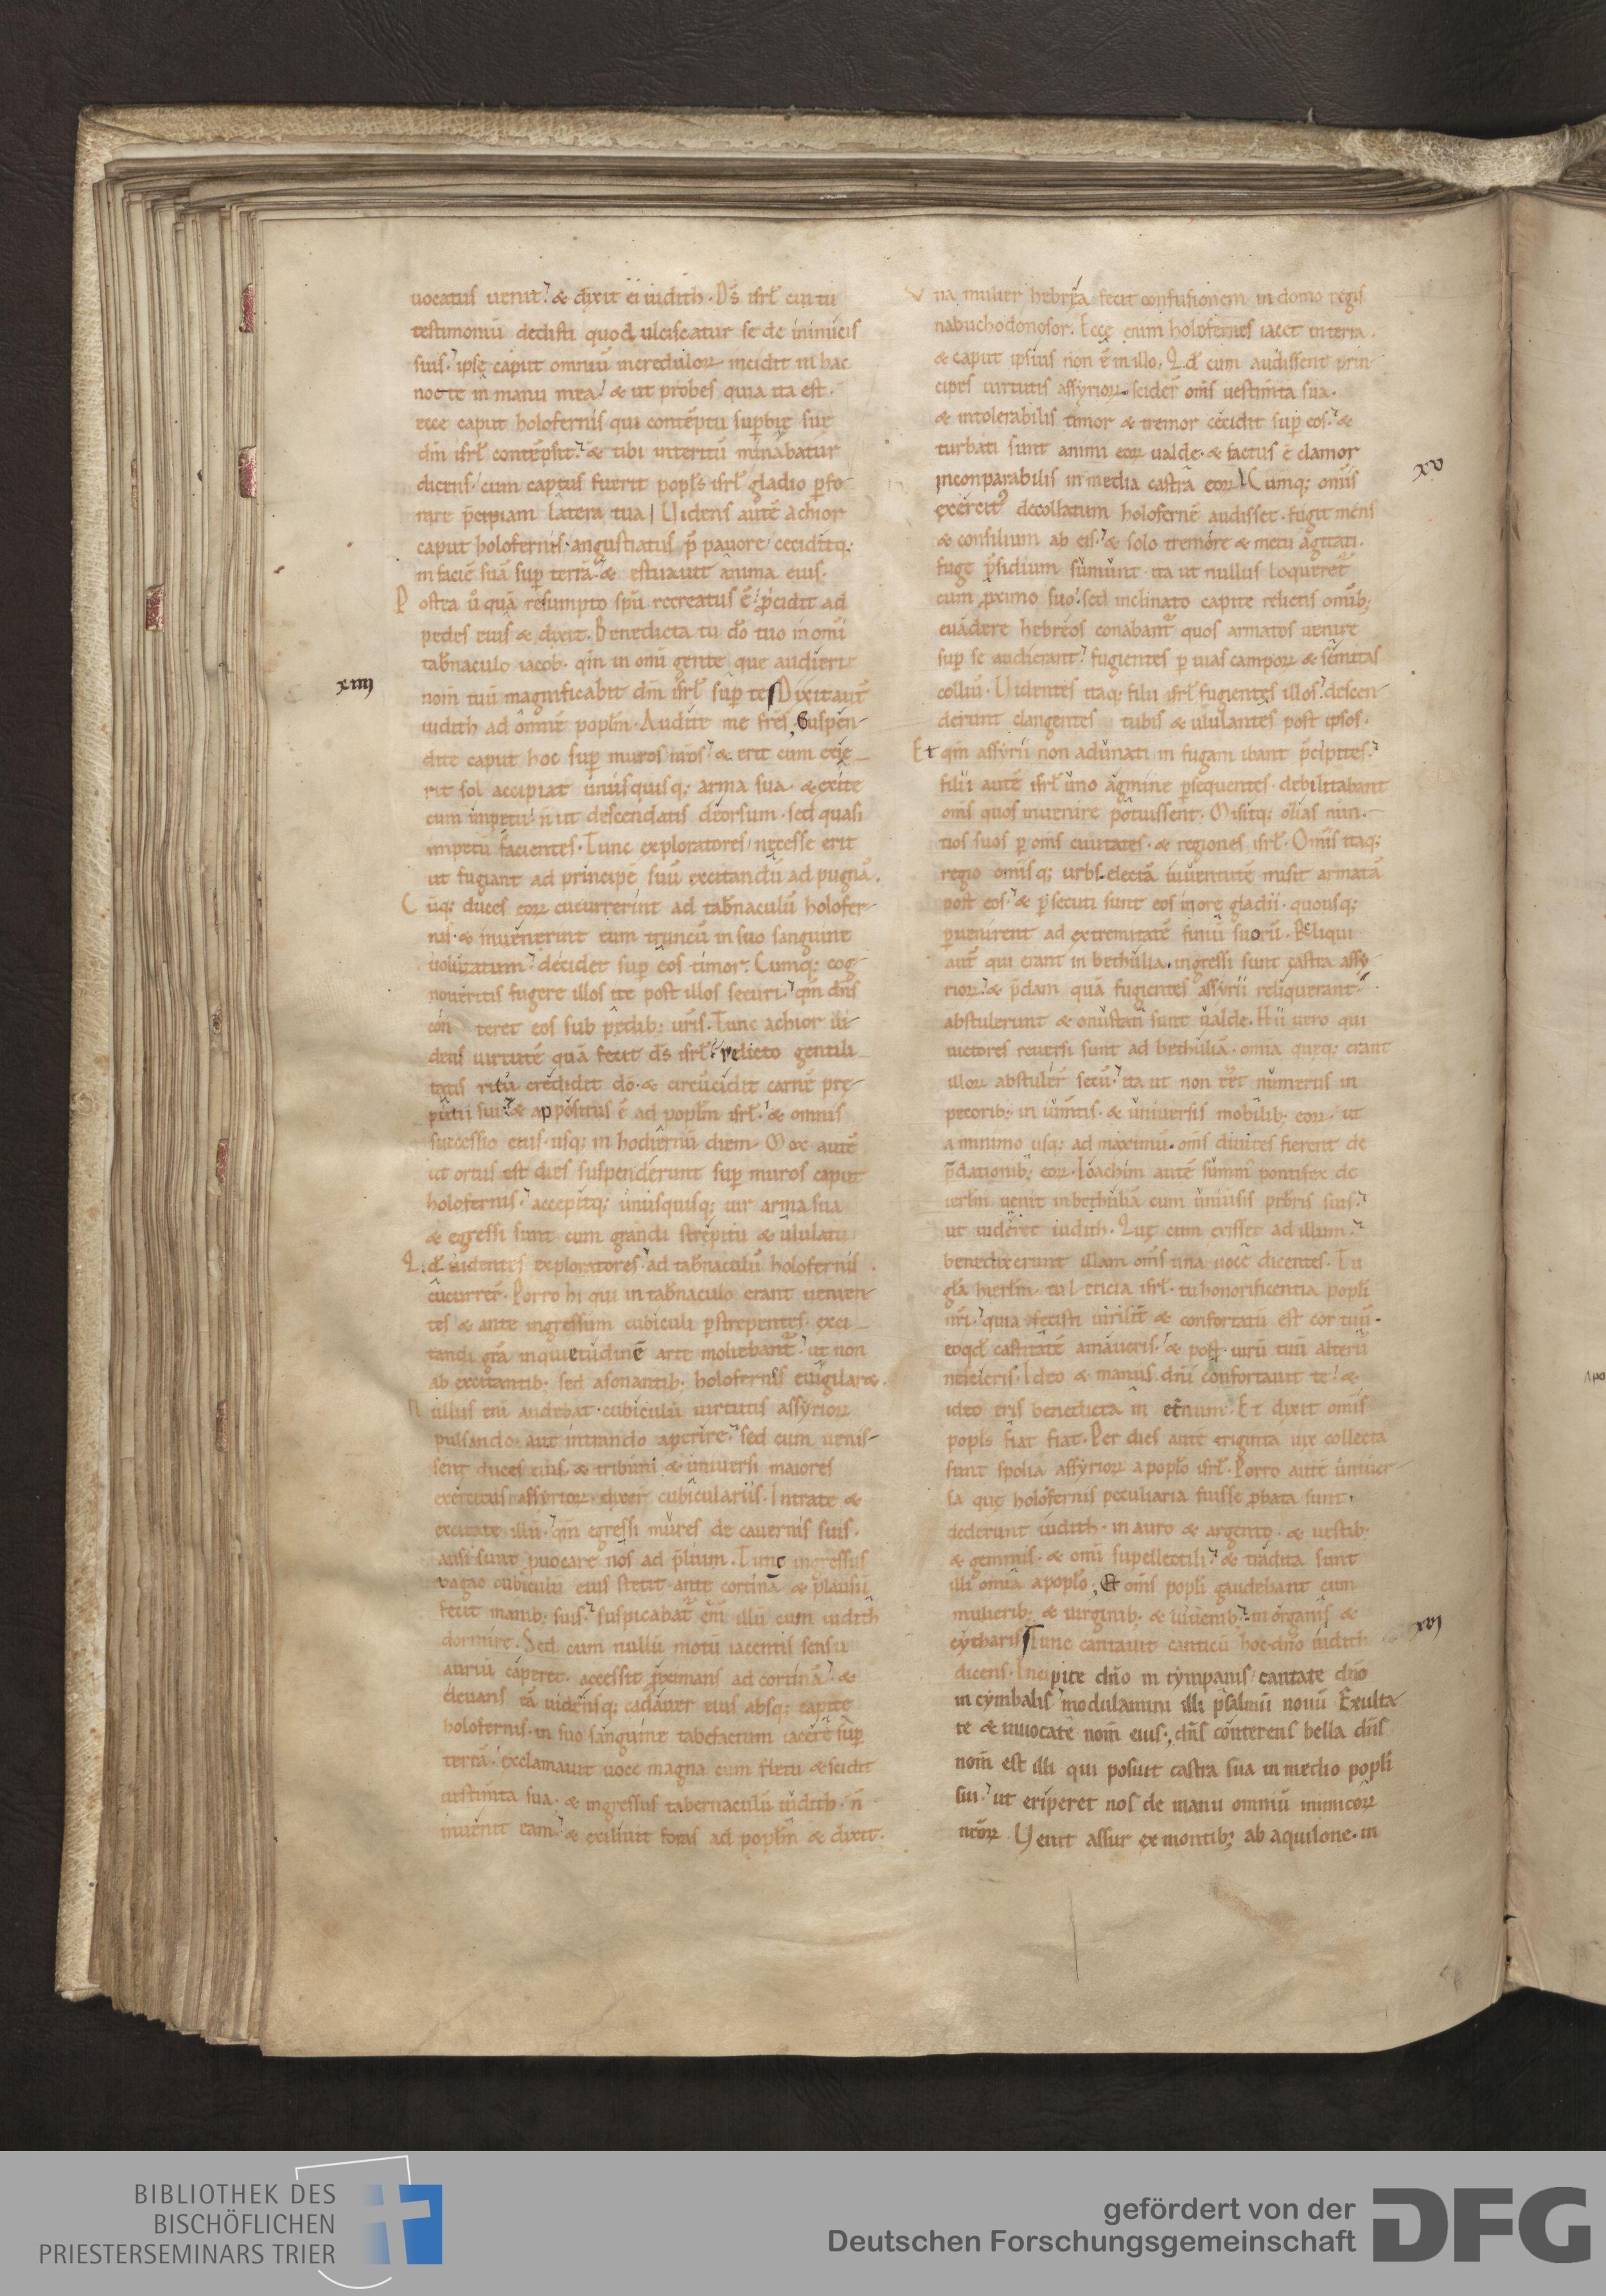 uocatus uenit. & dixit ei iudith. Ds̄ isrł cui tu
testimoniū dedisti quod ulciscatur se de inimicis
suis. ipse caput omniū increduloꝝ incidit in hac
nocte in manu mea. & ut probes quia ita est.
ecce caput holofernis qui contēptu suꝑbię suę
dm̄ isrł contēpsit. & tibi interitū minabatur
dicens. cum captus fuerit popl̄s isrł gladio ꝑfo-
rare p̄cipiam latera tua Uidens autē achior
caput holofernis. angustiatus p̄ pauore ceciditq;
in faciē suā suꝑ terrā. & estuauit anima eius.
Postea ū quā resumpto spū recreatus ē. p̄cidit ad
pedes eius & dixit. Benedicta tu do tuo in omi
tab̄naculo iacob. qm̄ in omi gente que audierit
nom̄ tuū magnificabit dm̄ isrł suꝑ te Dixit aut̄
xiiii
iudith ad omnē popłm. Audite me fr̄s, Suspen-
dite caput hoc suꝑ muros nr̄os. & erit cum exie-
rit sol accipiat unusquisq; arma sua. & exite
cum impetu. n̄ ut descendatis deorsum. sed quasi
impetū facientes. Tunc exploratores necesse erit
ut fugiant ad principē suū excitandū ad pugnā.
Cūq; duces eoꝝ cucurrerint ad tab̄naculū holofer-
nis. & inuenerint eum truncū in suo sanguine
uolutatum. decidet suꝑ eos timor. Cumq; cog-
noueritis fugere illos ite post illos securi. qm̄ dn̄s
con teret eos sub pedib; ur̄is. Tunc achior ui-
dens uirtutē quā fecit ds̄ isrł. relicto gentili-
tatis ritu credidit do. & circūcidit carnē prę-
putii sui. & appositus ē ad popłm isrł. & omnis
successio eius. usq; in hodiernū diem. Mox autē
ut ortus est dies suspenderunt suꝑ muros caput
holofernis. accepitq; unusquisq; uir arma sua
& egressi sunt cum grandi strepitu & ululatu
Qd̄ uidentes exploratores. ad tab̄naculū holofernis
cucurrer̄. Porro hi qui in tab̄naculo erant uenien-
tes & ante ingressum cubiculi ꝑstrepentes. exci-
tandi grā inquietudinē arte moliebant̄. ut non
ab excitantib; sed a sonantib; holofernis euigilaret.
Nullus eni audebat cubiculū uirtutis assyrioꝝ
pulsando aut intrando aperire. sed cum uenis-
sent duces eius. & tribuni & uniuersi maiores
exercitus assyrioꝝ. dixer̄ cubiculariis. Intrate &
excitate illū. qm̄ egressi mures de cauernis suis.
ausi sunt ꝓuocare nos ad p̄lium. Tunc ingressus
uagao cubiculū eius stetit ante cortinā & plausū
fecit manib; suis. suspicabat̄ em̄ illū cum iudith
dormire. Sed cum nullū motū iacentis sensu
auriū caperet. accessit ꝓximans ad cortinā. &
eleuans eā uidensq; cadauer eius absq; capite
holofernis. in suo sanguine tabefactum iacere suꝑ
terrā. exclamauit uoce magna cum fletu & scidit
uestim̄ta sua. & ingressus tabernaculū iudith. n̄
inuenit eam. & exiliuit foras ad popłm & dixit.
Una mulier hebrea fecit confusionem in domo regis
nabuchodonosor. Ecce enim holofernes iacet in terra.
& caput ipsius non ē in illo. Qd̄ cum audissent prin-
cipes uirtutis assyrioꝝ. scider̄ oms̄ uestim̄ta sua.
& intolerabilis timor & tremor cecidit suꝑ eos. &
turbati sunt animi eoꝝ ualde. & factus ē clamor
inconparabilis in media castra eoꝝ Cumq; omis̄
xv
exercit᾿ decollatum holofernē audisset. fugit mens
& consilium ab eis. & solo tremore & metu agitati.
fugę p̄sidium sumunt. ita ut nullus loqueret̄
cum ꝓximo suo. sed inclinato capite relictis omib;
euadere hebreos conabant̄ quos armatos uenire
suꝑ se audierant. fugientes ꝑ uias campoꝝ & semitas
colliū. Uidentes itaq; filii isrł fugientes illos. descen-
derunt clangentes tubis & ululantes post ipsos.
Et qm̄ assyrii non adunati in fugam ibant p̄cipites.
filii autē isrł uno agmine ꝑsequentes. debilitabant
oms̄ quos inuenire potuissent. Misitq; ozias nun-
tios suos ꝑ oms̄ ciuitates. & regiones isrł. Omis̄ itaq;
regio omisq; urbs. electā iuuentutē misit armatā
post eos. & ꝑsecuti sunt eos in ore gladii. quousq;
ꝑuenirent ad extremitatē finiū suorū. Reliqui
aut̄ qui erant in bethulia. ingressi sunt castra assy-
rioꝝ. & p̄dam quā fugientes assyrii reliquerant.
abstulerunt & onustati sunt ualde. Hii uero qui
uictores reuersi sunt ad bethuliā. omia queq; erant
illoꝝ abstuler̄ secū. ita ut non eēt numerus in
pecorib; in ium̄tis. & uniuersis mobilib; eoꝝ. ut
a minimo usq; ad maximū. oms̄ diuites fierent de
p̄dationib; eoꝝ. Ioachim autē summ᾿ pontifex de
ierłm uenit in bethuliā cum uniūsis prb̄ris suis.
ut uideret iudith. Quę cum exisset ad illum.
benedixerunt illam oms̄ una uoce dicentes. Tu
głā hierłm. tu leticia isrł. tu honorificentia popłi
nr̄i. quia fecisti uirilit̄ & confortatū est cor tuū.
eoqd̄ castitatē amaueris. & post uirū tuū alterū
nescieris. Ideo & manus dn̄i confortauit te. &
ideo eris benedicta in etnum. Et dixit omis̄
popl̄s fiat fiat. Per dies autē triginta uix collecta
sunt spolia assyrioꝝ a popło isrł. Porro autē uniuer-
sa quę holofernis peculiaria fuisse ꝓbata sunt.
dederunt iudith. in auro & argento. & uestib;
& gemmis. & omi supellectili. & tradita sunt
illi omia a popło, Et oms̄ popłi gaudebant cum
mulierib; & uirginib; & iuuenib;. in organis &
cytharis Tunc cantauit canticū hoc dn̄o iudith
xvi
dicens. Incipite dn̄o in tympanis cantate dn̄o
in cymbalis modulamini illi psalmū nouū Exulta-
te & inuocate nom̄ eius., dn̄s conterens bella dn̄s
nom̄ est illi qui posuit castra sua in medio popłi
sui. ut eriperet nos de manu omniū inimicoꝝ
nr̄oꝝ Uenit assur ex montib; ab aquilone. in
BIBLIOTHEK DES
BISCHÖFLICHEN
PRIESTERSEMINARS TRIER
gefördert von der
Deutschen Forschungsgemeinschaft
DFG